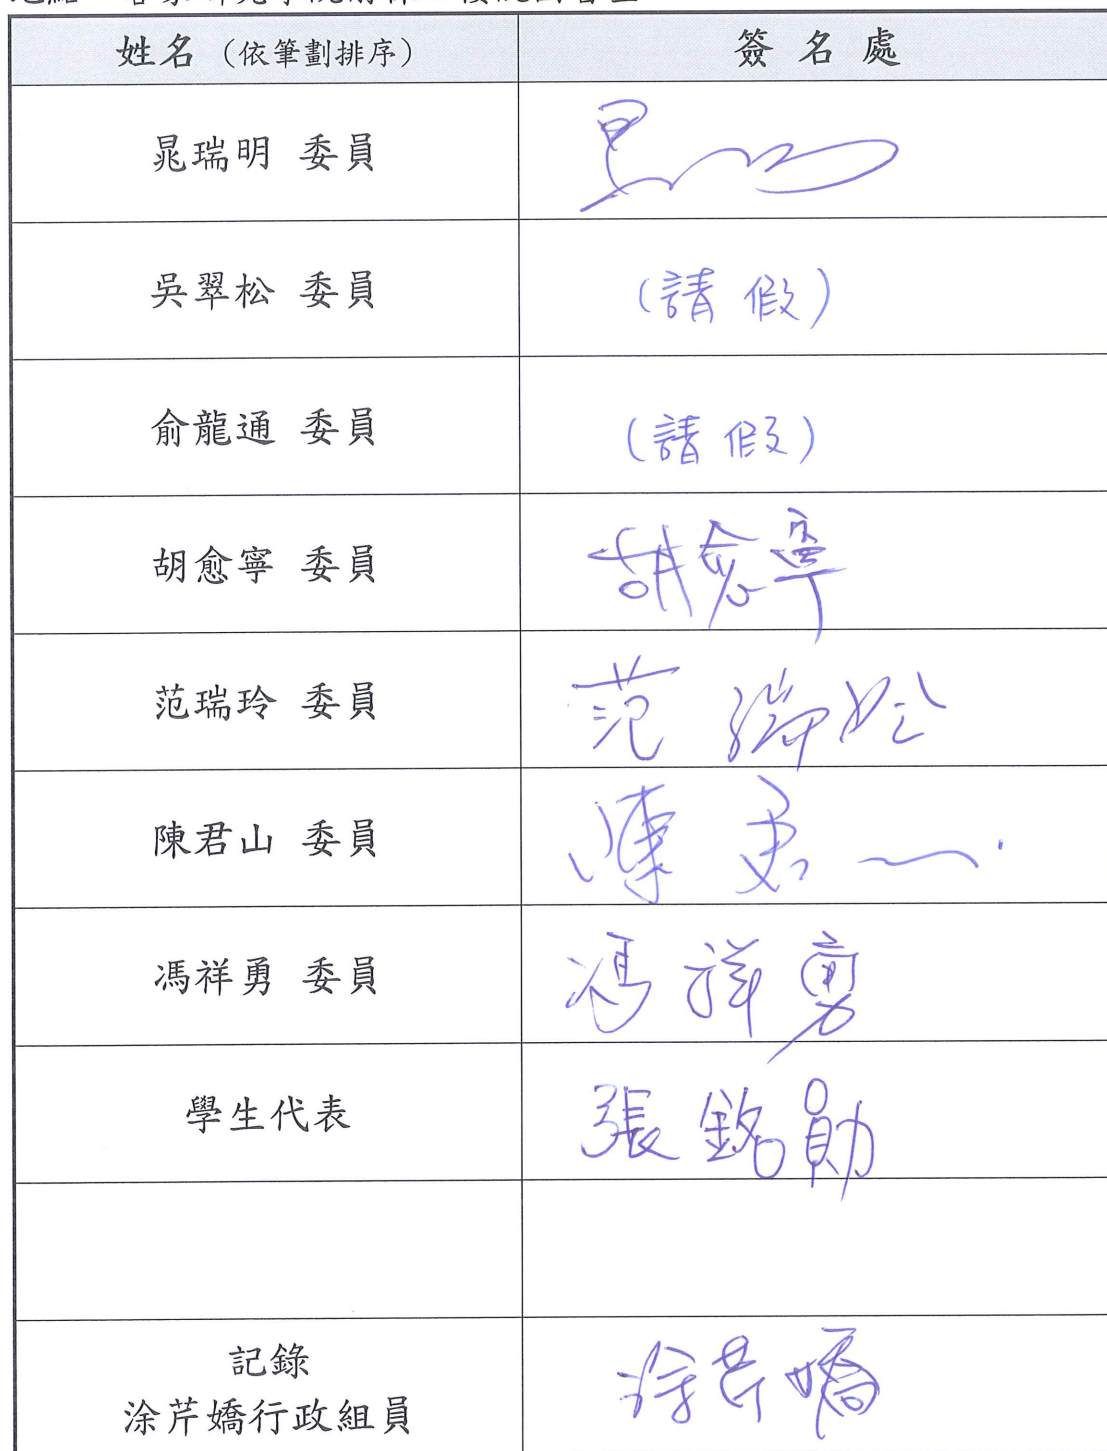 姓名（依筆劃排序） 簽 名 處
晁瑞明 委員
吳翠松 委員 （請 假）
俞龍通 委員 （請 假）
胡愈寧 委員 胡愈寧
范瑞玲 委員 范 瑞玲
陳君山 委員 陳 君
馮祥勇 委員 馮 祥 勇
學生代表 張 銘 勛
記錄
涂芹嬌行政組員 涂芹嬌